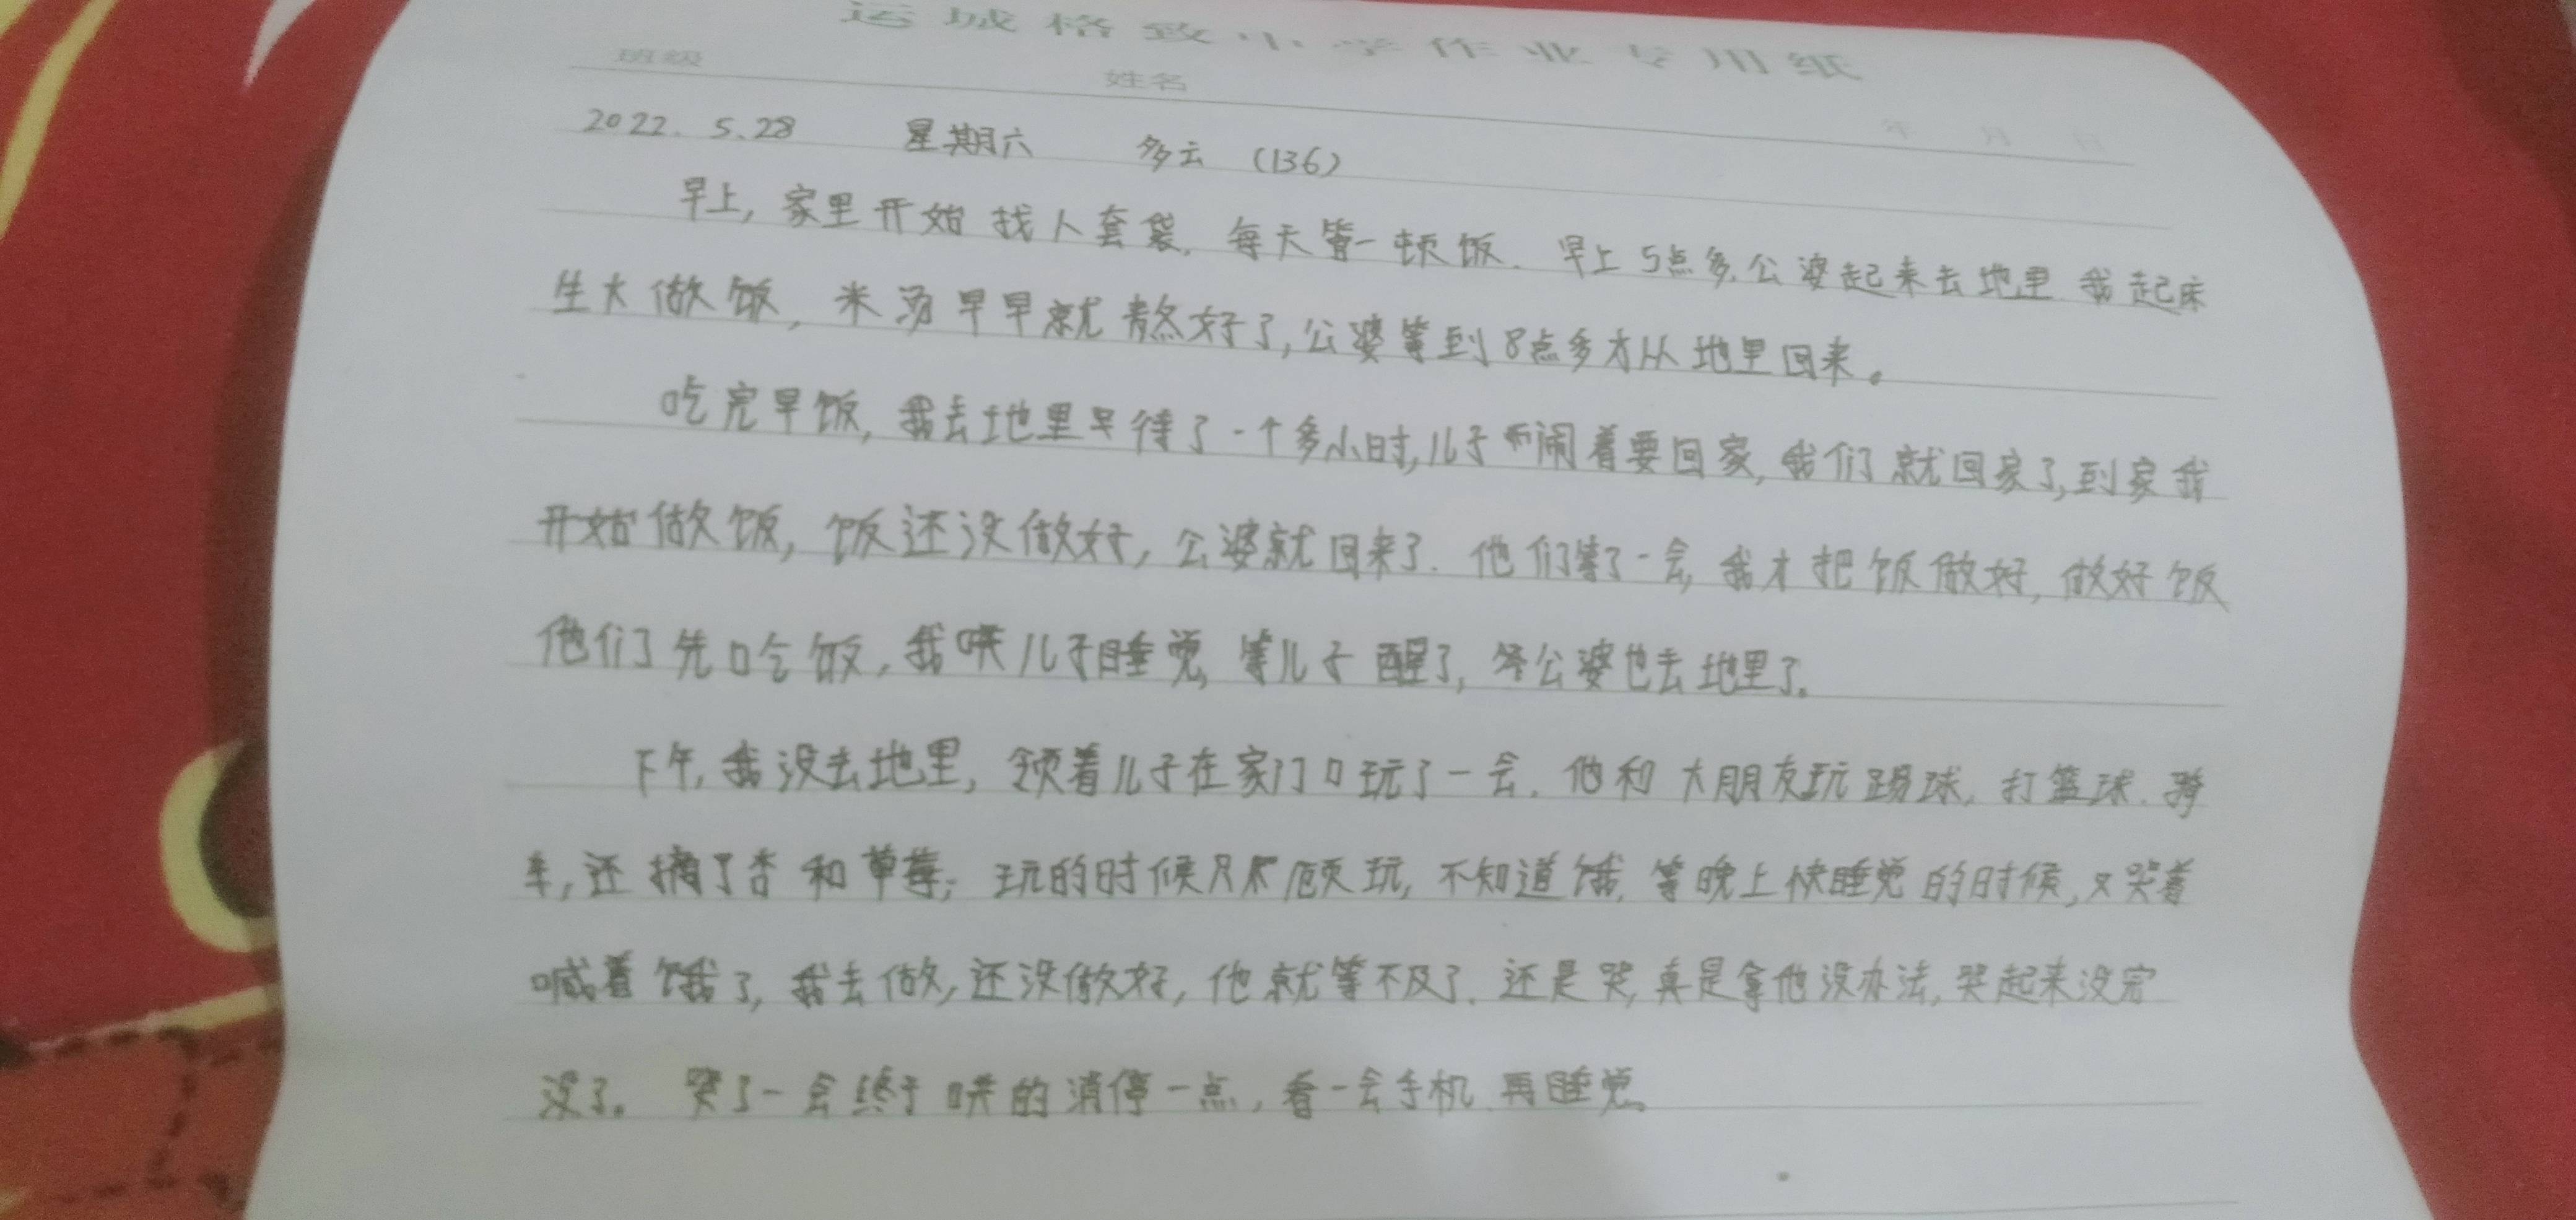 运城格致中学作业专用纸
班级 姓名
年 月 日
2022. 5.28 星期六 多云 (136)
早上,家里开始找人套袋,每天管一顿饭.早上5点多,公婆起来去地里,我起床
生火做饭,米汤早早就熬好了,公婆等到8点多才从地里回来。
吃完早饭,我去地里早待了一个多小时,儿子闹着要回家,我们就回家了,到家我
开始做饭,饭还没做好,公婆就回来了.他们等了一会,我才把饭做好,做好饭
他们先吃饭,我哄儿子睡觉,等儿子醒了,公婆也去地里了。
下午,我没去地里,领着儿子在家门口玩了一会.他和大朋友玩踢球,打篮球.骑
车,还摘了杏和草莓,玩的时候只顾玩,不知道饿,等晚上快睡觉的时候,又哭着
喊着饿了,我去做,还没做好,他就等不及了.还是哭,真是拿他没办法,哭起来没完
没了。哭了一会终于哄的消停一点,看一会手机,再睡觉。